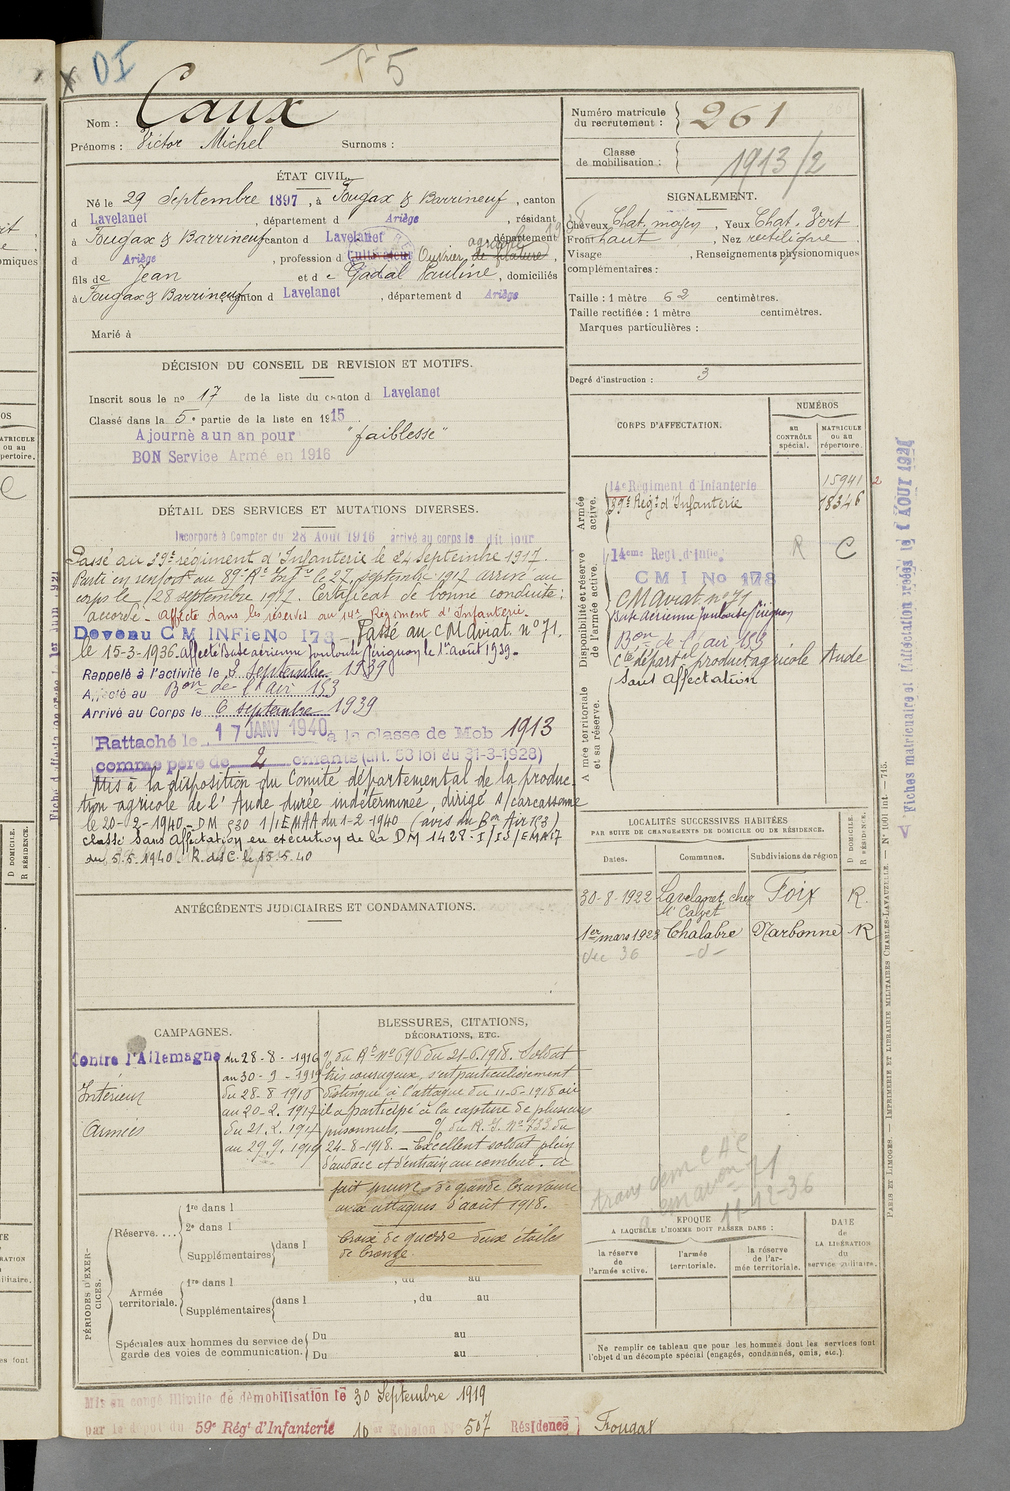 DI
5
Nom : Caux
Prénoms : Victor Michel Surnoms :
Numéro matricule du recrutement : 261
Classe de mobilisation : 1913/2
ÉTAT CIVIL.
Né le 29 Septembre 1897, à Fougax & Barrineuf, canton
d Lavelanet, département d Ariège, résidant
à Fougax & Barrineuf canton d Lavelanet département
d Ariège, profession d Cultivateur Ouvrier agricole de filature,
fils de Jean et de Gadal Pauline, domiciliés
à Fougax & Barrineuf canton d Lavelanet, département d Ariège
Marié à
SIGNALEMENT.
Cheveux Chat. moyen, Yeux Chat. Vert
Front haut, Nez rectiligne
Visage , Renseignements physionomiques
complémentaires :
Taille : 1 mètre 62 centimètres.
Taille rectifiée : 1 mètre centimètres.
Marques particulières :
Degré d'instruction : 3
DÉCISION DU CONSEIL DE REVISION ET MOTIFS.
Inscrit sous le n° 17 de la liste du canton d Lavelanet
Classé dans la 5e partie de la liste en 1915
Ajourné a un an pour "faiblesse"
BON Service Armé en 1916
DÉTAIL DES SERVICES ET MUTATIONS DIVERSES.
Incorporé à Compter du 28 Août 1916 arrivé au corps le dit jour
Passé au 59e régiment d'Infanterie le 24 septembre 1917.
Parti en renfort au 89e Rt Infie le 27 septembre 1917 arrivé au
corps le 28 septembre 1917. Certificat de bonne conduite :
accordé - Affecté dans les réserves au 14e Régiment d'Infanterie.
Devenu C M INFie No 178 - Passé au CM Aviat. n° 71.
le 15-3-1936. Affecté Base aérienne Toulouse Pérignon le 1er août 1939.
Rappelé à l'activité le 3 septembre 1939
Affecté au Bon de l'air 153
Arrivé au Corps le 6 septembre 1939
Rattaché le 17 JANV 1940 à la classe de Mob 1913
comme père de 2 enfants (art. 58 loi du 31-3-1928)
Mis à la disposition du Comité départemental de la produc-
tion agricole de l'Aude durée indéterminée, dirigé s/ Carcassonne
le 20-2-1940 - DM 530 1/1EMAA du 1-2-1940 (avis du Bon Air 153)
classé sans affectation en exécution de la DM 1428-
du 5.5.1940
CORPS D'AFFECTATION.
NUMÉROS
au CONTRÔLE spécial.
MATRICULE ou au répertoire.
Armée active.
14e Régiment d Infanterie 15941
59e Regt d'Infanterie 18346
Disponibilité et réserve de l'armée active.
14eme Regt. d'Infie R C
C M I No 178
CM Aviat n° 71
Base Aérienne Toulouse Pérignon
Bon de l'air 153
Cté départal product agricole Aude
Sans affectation
Armée territoriale et sa réserve.
LOCALITÉS SUCCESSIVES HABITÉES
PAR SUITE DE CHANGEMENTS DE DOMICILE OU DE RÉSIDENCE.
Dates. Communes. Subdivisions de région D DOMICILE. R RÉSIDENCE.
30-8-1922 Lavelanet chez Mr Calvet Foix R.
1er mars 1928 Chalabre Narbonne R
dec 36 -d-
ANTÉCÉDENTS JUDICIAIRES ET CONDAMNATIONS.
CAMPAGNES.
Contre l'Allemagne du 28-8-1916
au 30-9-1919
Intérieur du 28-8-1916
au 20-2.1917
Armées du 21.2.1917
au 29.9.1919
BLESSURES, CITATIONS,
DÉCORATIONS, ETC.
O/ du Rt n° 696 du 21-6.1918. Soldat
très courageux, s'est particulièrement
distingué à l'attaque du 11-6-1918 où
il a participé à la capture de plusieurs
prisonniers. - O/ du R.I. N° 733 du
24-8-1918. - Excellent soldat plein
d'audace et d'entrain au combat. a
fait preuve de grande bravoure
aux attaques d'août 1918.
Croix de guerre deux étoiles
de bronze.
PÉRIODES D'EXERCICES.
Réserve....
1re dans l
2e dans l
Supplémentaires dans l
Armée territoriale.
1re dans l , du au
Supplémentaires dans l , du au
Spéciales aux hommes du service de
garde des voies de communication.
Du au
Du au
11-12-36
ÉPOQUE
A LAQUELLE L'HOMME DOIT PASSER DANS :
la réserve de l'armée active.
l'armée territoriale.
la réserve de l'armée territoriale.
DATE DE LA LIBÉRATION du service militaire.
Ne remplir ce tableau que pour les hommes dont les services font
l'objet d'un décompte spécial (engagés, condamnés, omis, etc.).
Mis en congé illimité de démobilisation le 30 Septembre 1919
par le dépôt du 59e Régt d'Infanterie 10 er Echelon No 507 Résidence Fougax
PARIS ET LIMOGES. — IMPRIMERIE ET LIBRAIRIE MILITAIRES CHARLES-LAVAUZELLE. — N° 1001 int. — 715.